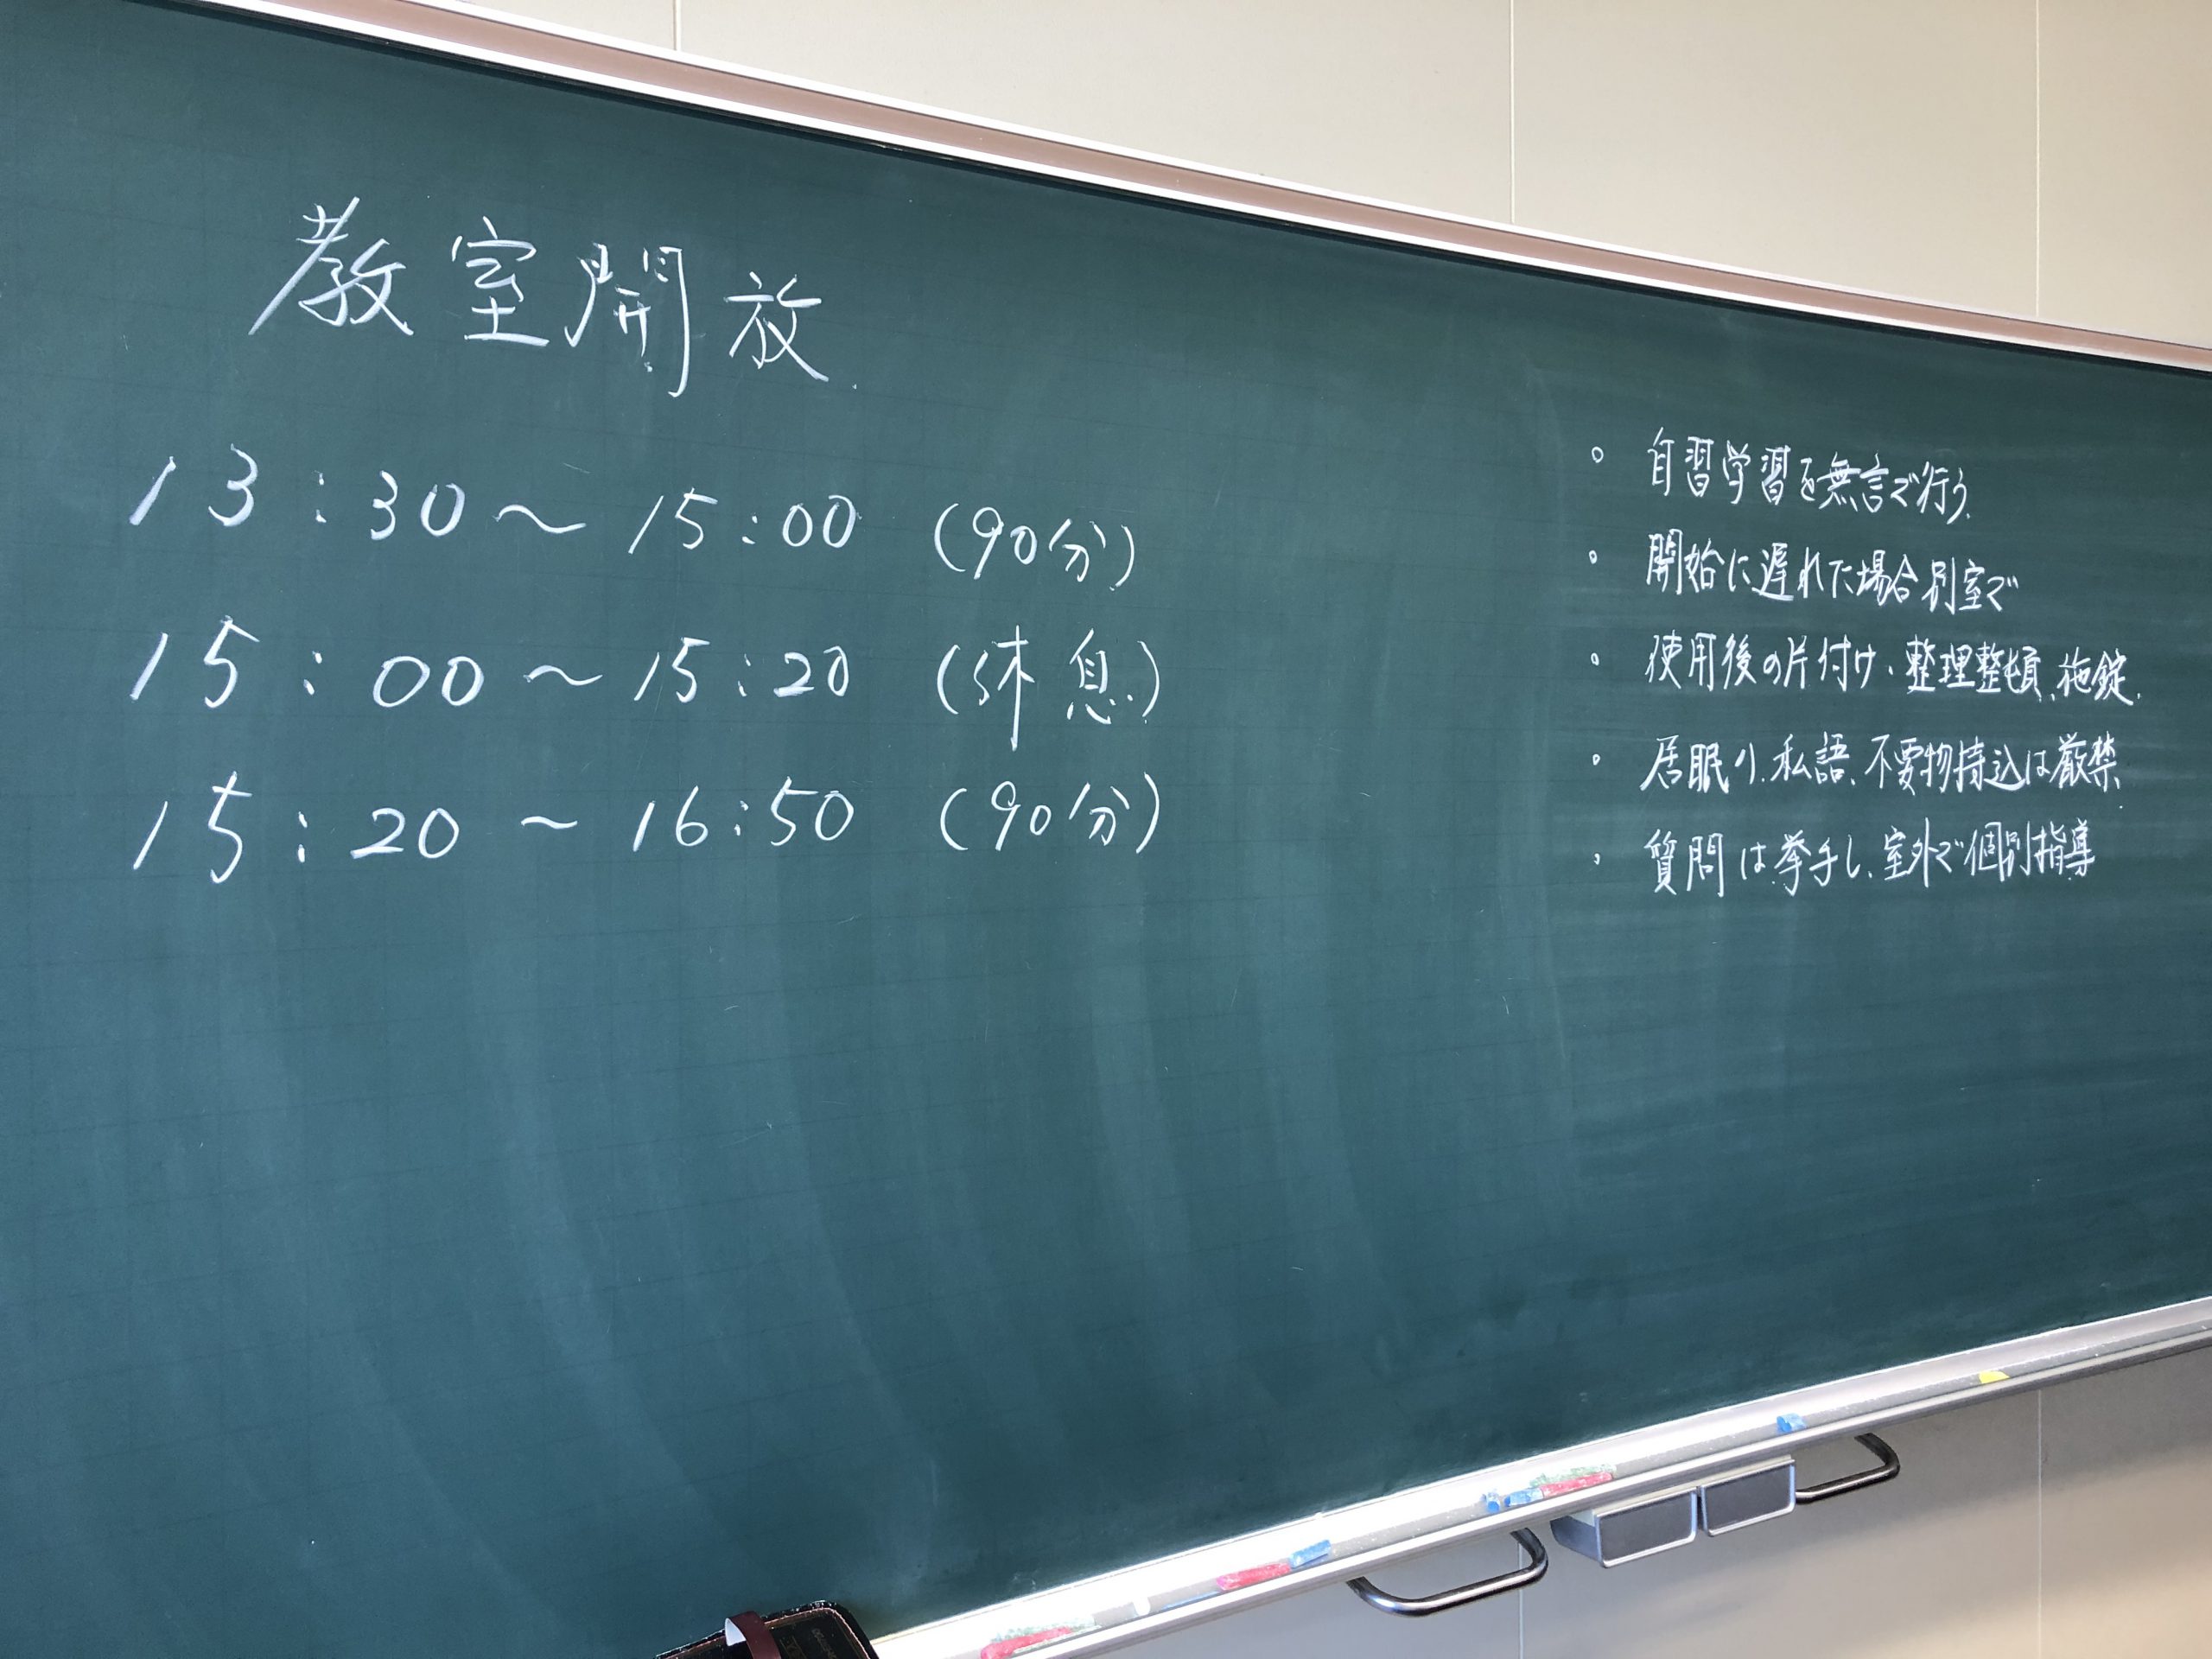 教室開放
13:30～15:00 (90分)
15:00～15:20 (休息)
15:20～16:50 (90分)
・自習学習を無言で行う.
・開始に遅れた場合別室で
・使用後の片付け・整理整頓、施錠.
・居眠り、私語、不要物持込は厳禁
・質問は挙手し、室外で個別指導